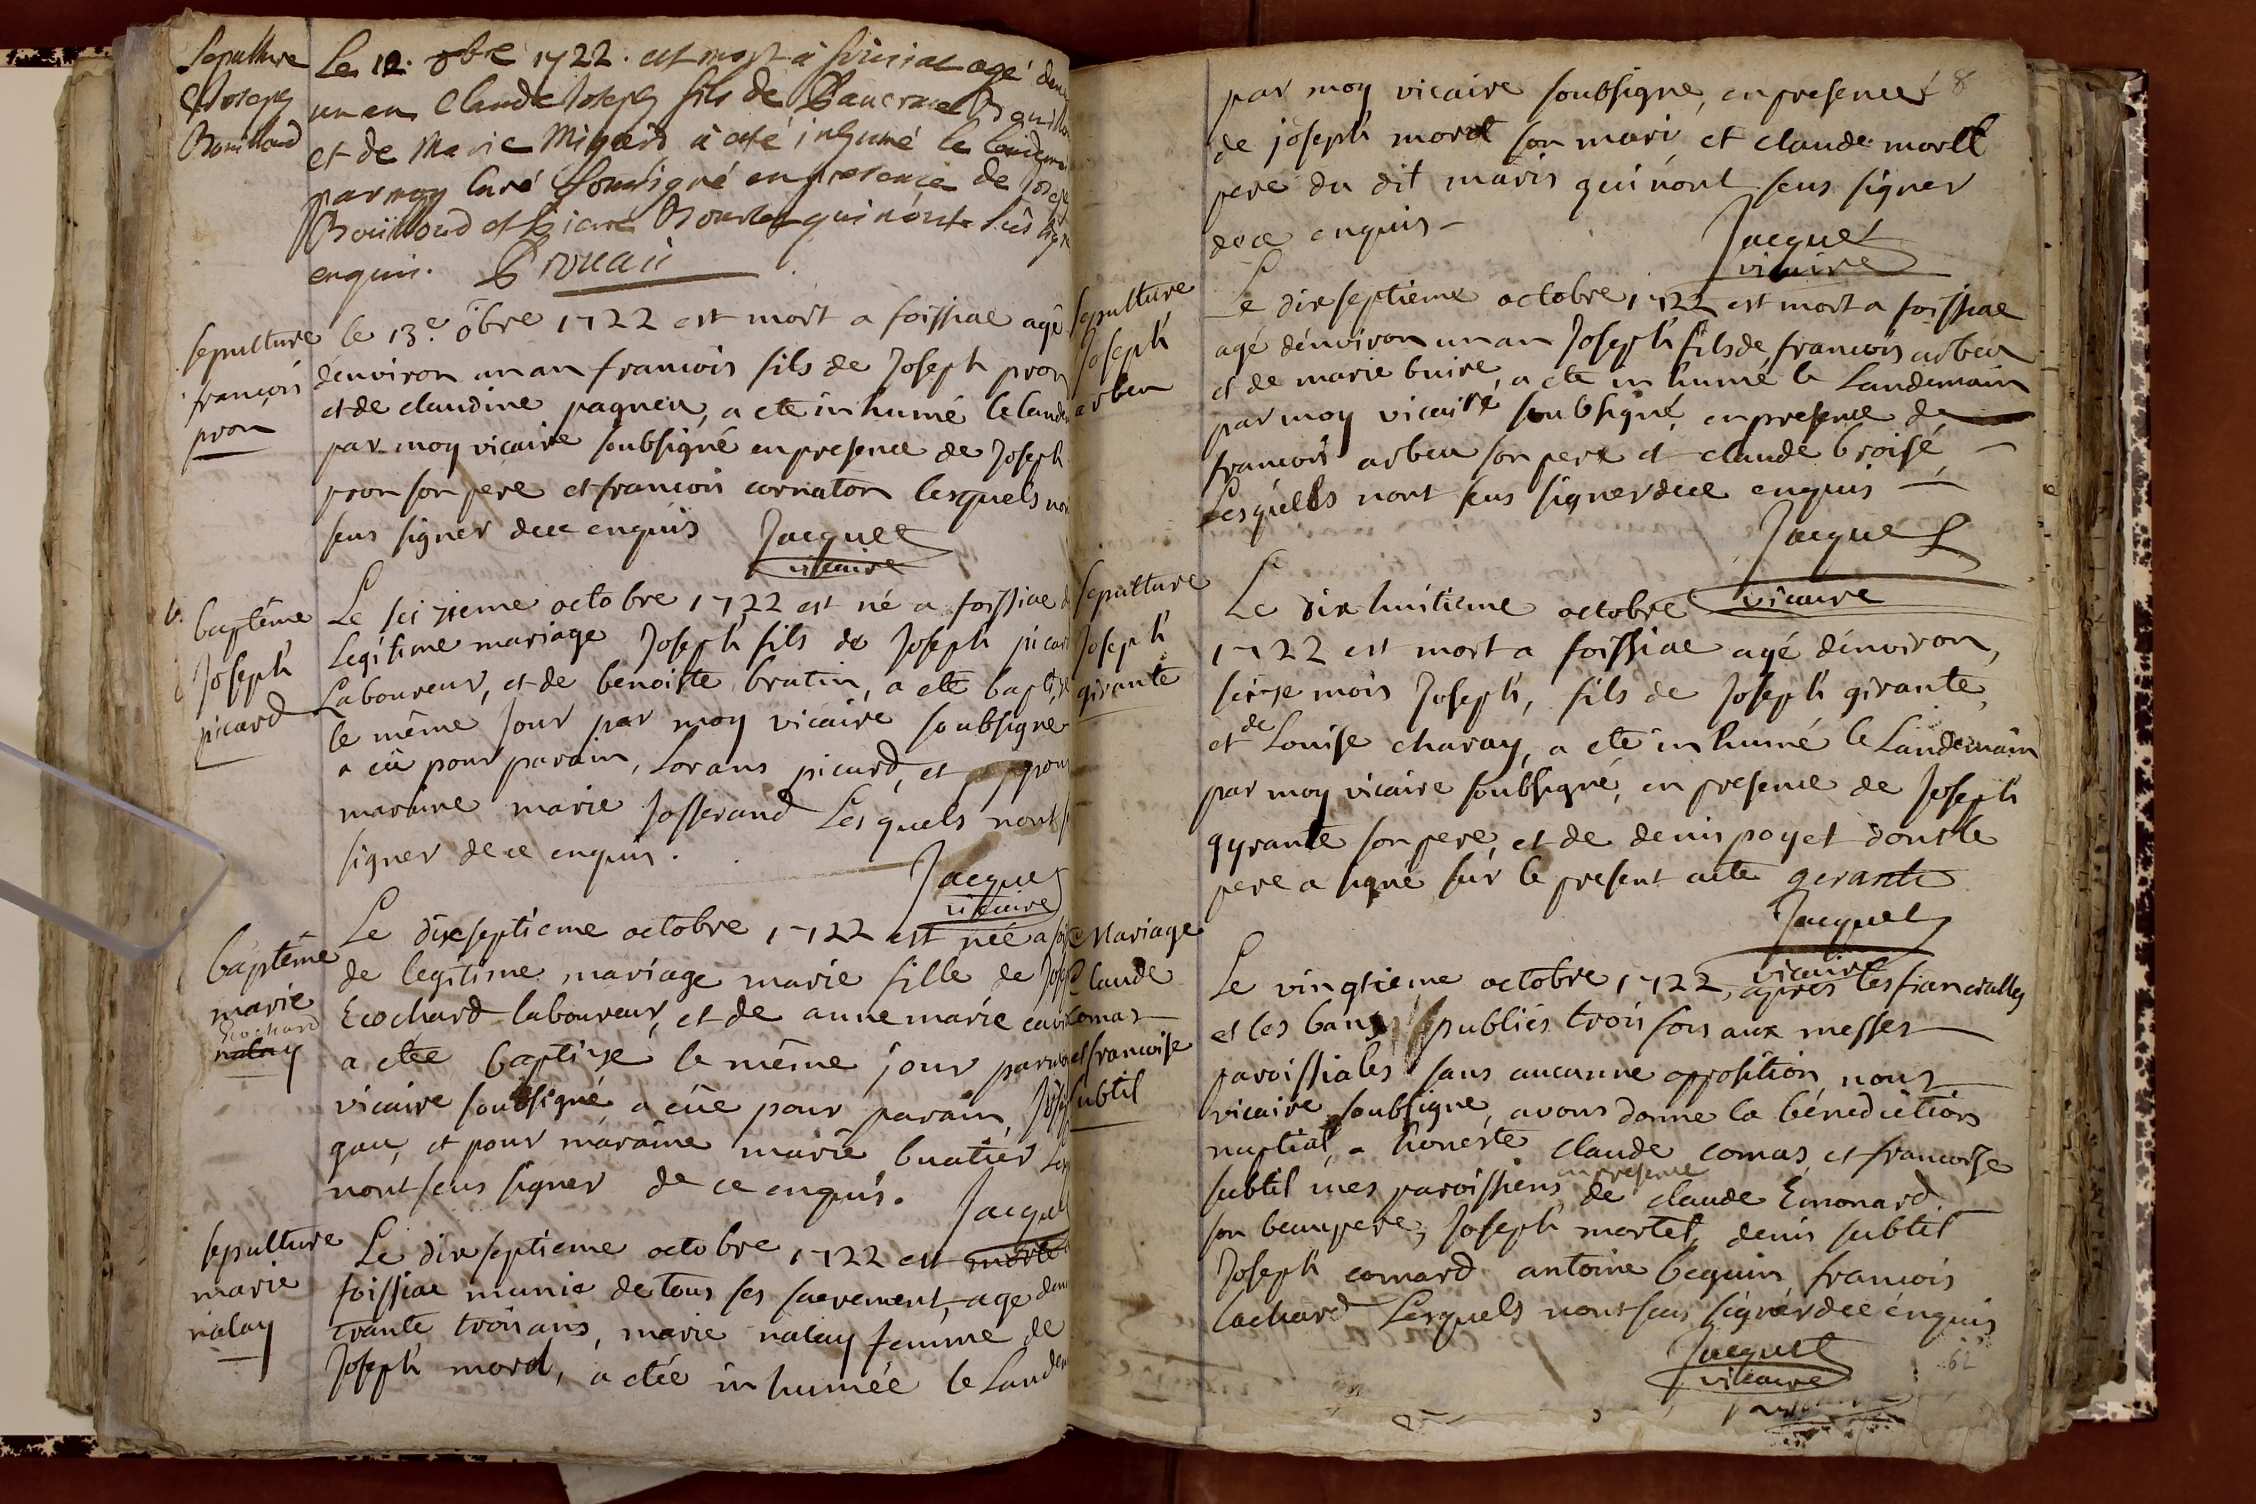 Sepulture
Joseph
Bouilloud
Le 12. 8bre 1722. est mort à foissiac agé
un an Claude Joseph fils de
et de Marie à été inhumé le
par moy Curé Soussigné en presence de Joseph
Boüilloud et qui n'ont Sûs
enquis.
sepulture
francois
pron
le 13.e 8bre 1722 est mort a foissiac agé
d'environ un an francois fils de Joseph pron
et de claudine pagneu, a ete inhumé le
par moy vicaire soubsigné en presence de Joseph
pron son pere et francois cornaton lesquels
seus signer dece enquis Jacquet
vicaire
baptême
Joseph
picard
Le seizieme octobre 1722 est né a foissiac
legitime mariage Joseph fils de Joseph
Laboureur, et de benoiste brutin, a ete
le même Jour par moy vicaire soubsigné
a eü pour parain, Lorans picard, et pour
maraine marie Josserand Lesquels
signer de ce enquis.
Jacquet
vicaire
baptême
marie
Ecochard
nalay
Le dixseptieme octobre 1722 est née a
de legitime mariage marie fille de
Ecochard laboureur, et de anne marie
a etee baptizé le même jour par
vicaire soubsigné a eüe pour parain,
gau, et pour maraine marie buatier
nont seus signer de ce enquis.
Jacquet
sepulture
marie
nalay
Le dixseptieme octobre 1722 est morte
foissiac munie de tous ses sacrement, age
trante trois ans, marie nalay femme de
Joseph morel, a etée inhumée le
8
par moy vicaire soubsigne, en presence
de joseph morel son mari et claude morel
pere du dit maris qui nont seus signer
dece enquis
Jacquet
vicaire
sepulture
Joseph
arben
Le dixseptieme octobre 1722 est mort a foissiac
agé d'environ un an Joseph fils de francois arben
et de marie buire, a ete inhumé le Landemain
par moy vicaire soubsigné, en presence de
francois arben son pere et claude broisé,
Lesquels nont seus signer dece enquis
Jacquet
vicaire
sepulture
Joseph
girante
Le dix huitieme octobre
1722 est mort a foissiac agé d'environ,
seize mois Joseph, fils de Joseph girante,
et de Louise charay, a ete inhumé le Landemain
par moy vicaire soubsigné, en presence de Joseph
gyrante son pere, et de denis poyet dont le
pere a signé sur le present acte gerante
Jacquet
vicaire
Mariage
Claude
comas
et francoise
subtil
Le vingtieme octobre 1722, apres les fiancialles
et les bans publiés trois fois aux messes
paroissiales sans aucunne opposition, nous
vicaire soubsigne, avons donne la bénediction
nuptial, a honeste claude comas, et francoise
subtil mes paroissiens en presence de claude Emonard
son beaupere, Joseph mortel, denis subtil
Joseph comard antoine beguin francois
cachard Lesquels nont seus signer dece enquis
Jacquet
vicaire
62